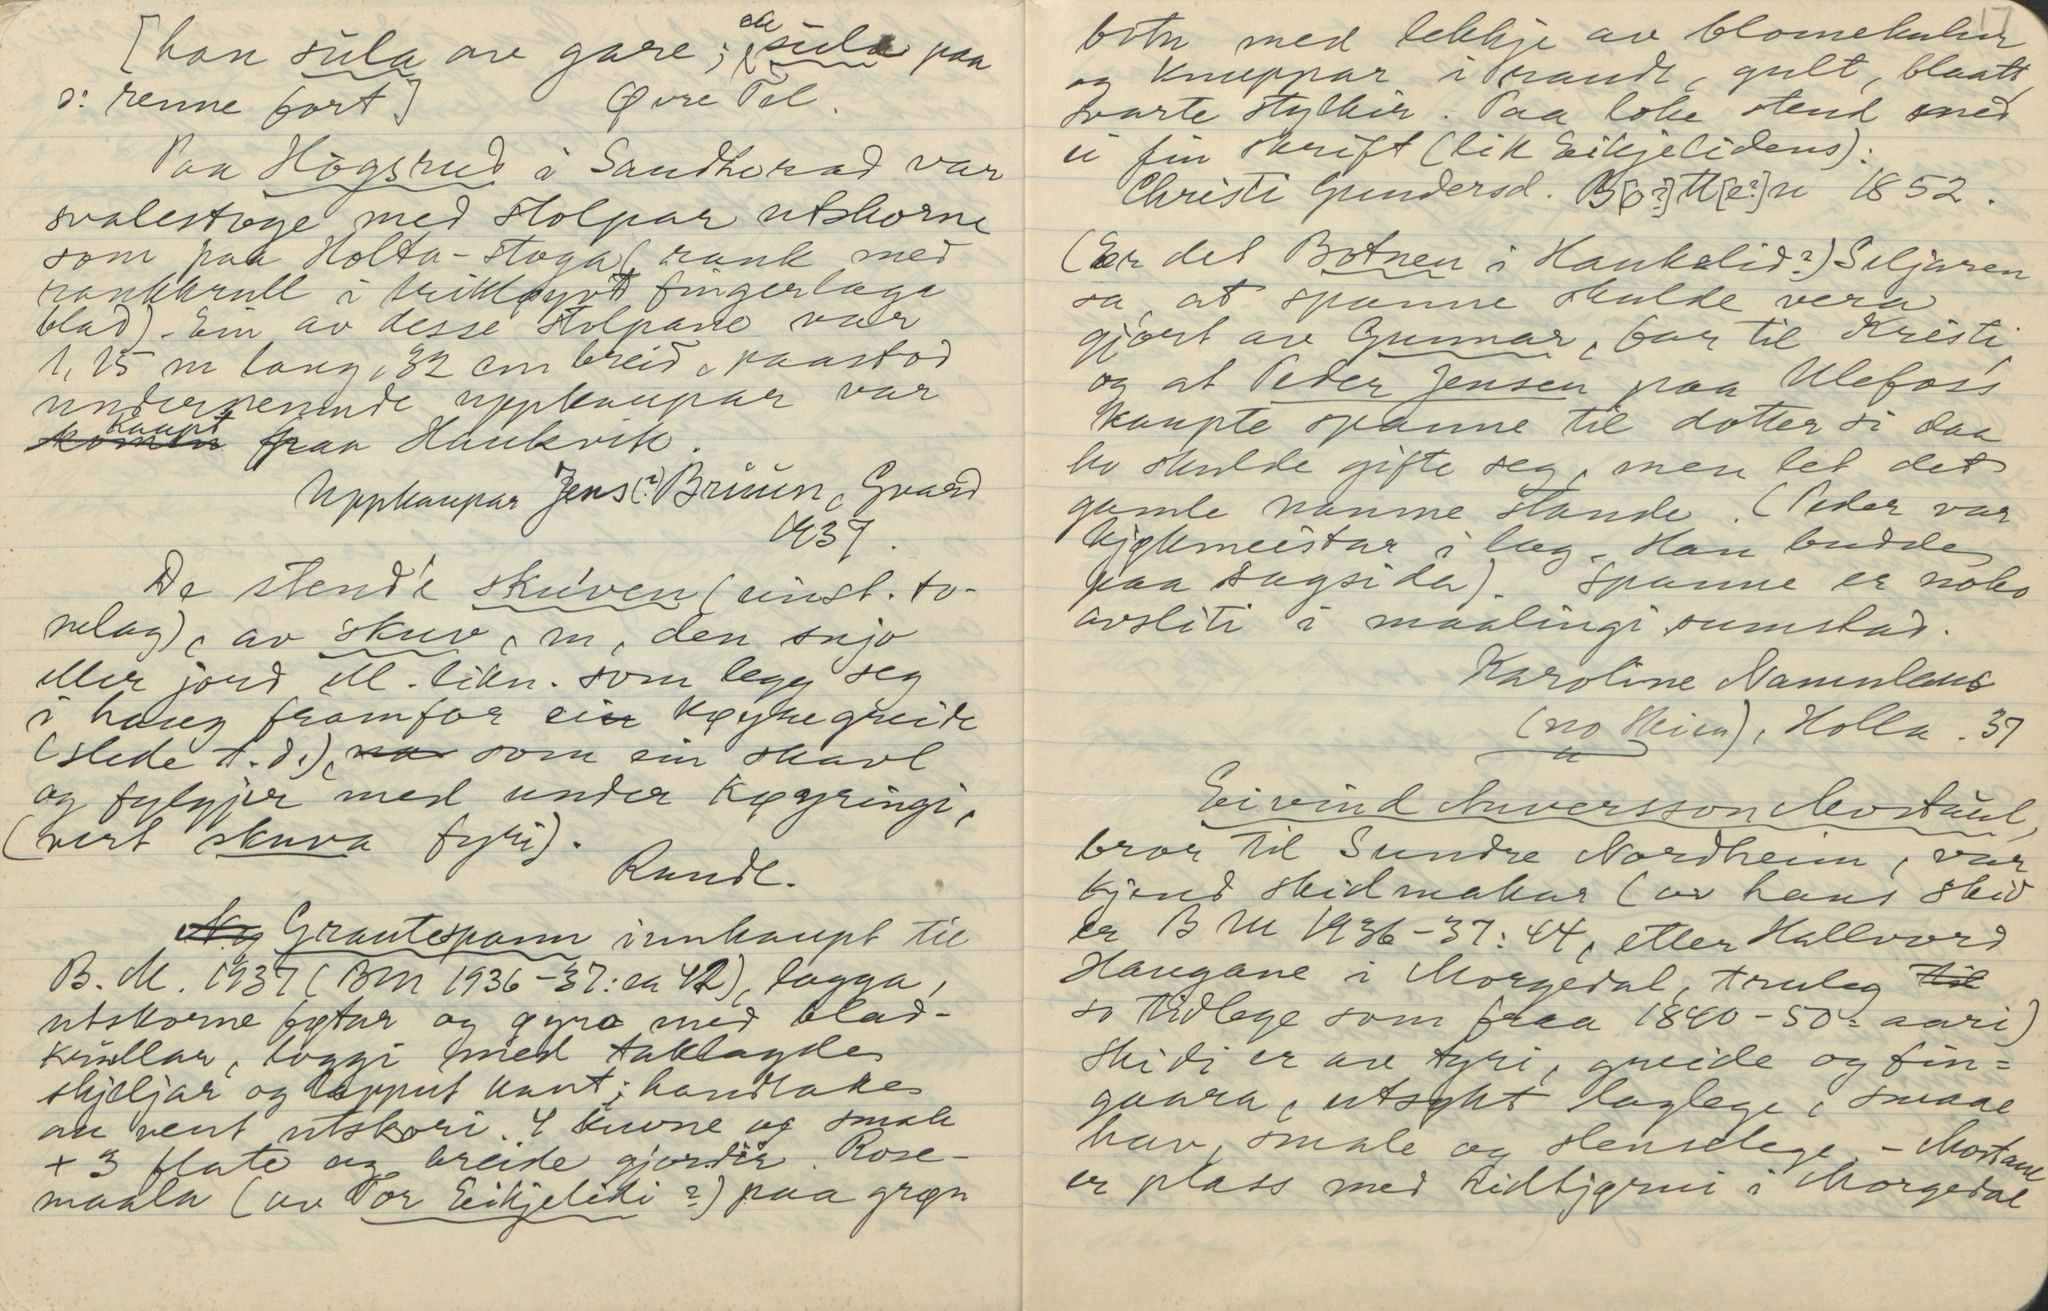 [han sula av gare; el. sula paa
ɔ: renne fort] Øvre Tel.
Paa Høgsrud i Sandherad var
svalestoge med stolpar utskorne
som paa Holta-stoga (rank med
rankkrull i trikløyvt fingerlaga
blad). Ein av desse stolpane var
1,15 m lang, 32 cm breid, paastod
undernemnde uppkaupar var
komin kaupt fraa Haukvik.
Uppkaupar Jens(?) Bruun, Gvarv
1937.
De stend'e skuven (einst. to-
nelag), av skuv, m, den snjo
eller jord ell. likn. som legg seg
i haug framfor ein køyregreide
(slede t.d.), som ein skavl
og fylgjer med under køyringi,
(vert skuva fyri).
Rundt.
Grautespann innkaupt til
B.M. 1937 (BM 1936-37: na 42), lagga,
utskorne føtar og gyro med blad-
krullar, loggi med taklagde
skjeljar og lapput kant; handtake
au vent utskori. 4 kuvne og smale
+ 3 flate og breide gjordir. Rose-
maala (av Tor Eikjelidi?) paa grøn
17
botn med lekkje av blomekulur
og knuppar i raudt, gult, blaatt,
svarte stylkir. Paa loke stend med
ei fin skrift (lik Eikjelidens):
Christi Gundersd. B[o?]tt[e?]n 1852.
(Er det Botnen i Haukelid?) Seljaren
sa, at spanne skulde vera
gjort av Gunnar, far til Kristi,
og at Peder Jensen paa Ulefoss
kaupte spanne til dotter si daa
ho skulde gifte seg, men let det
gamle namne stande. (Peder var
kjøkmeistar i lag. Han budde
paa Dagsida). Spanne er noko
avsliti i maalingi sumstad.
Karoline Namnlaus
(no Heien), Holla. 37
Eivind Auversson Mostaul,
bror til Sundre Nordheim, var
kjend skidmakar (av hans skid
er BM 1936-37: 44, etter Hallvord
Haugane i Morgedal, truleg til
so tidlege som fraa 1840-50-aari)
Skidi er av tyri, greide og fin=
gaara, utsykt laglege, smaae
hav, smale og stenselege. - Mostaul
er plass med Lidtjørni i Morgedal